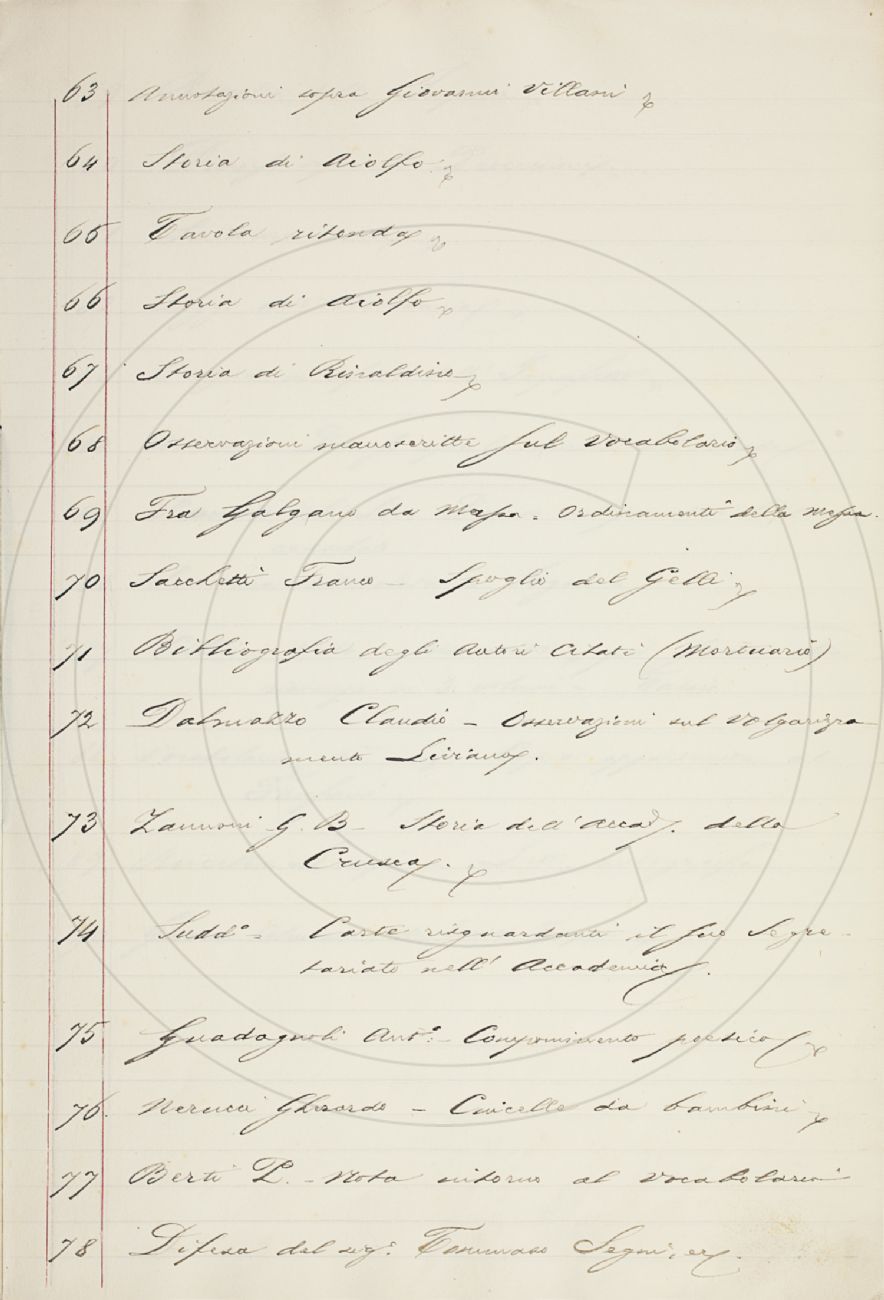 63 Annotazioni sopra Giovanni Villani
64 Storia di Aiolfo
65 Tavola ritonda
66 Storia di Aiolfo
67 Storia di Rinaldino
68 Osservazioni manoscritte sul Vocabolario
69 Fra Galgano da Massa. Ordinamenti della Messa.
70 Sacchetti Franco – Spoglio del Gelli
71 Bibliografia degli Autori Citati (Moreniano)
72 Dalmazzo Claudio – Osservazioni sul Volgarizza-
mento Liviano.
73 Zannoni G. B – Storia dell'Accad. della
Crusca.
74 Sudd.o – Carte risguardanti il suo Segre-
tariato nell' Accademia.
75 Guadagnoli Ant.o – Componimento poetico
76. Nerucci Gherardo – Cincelle da bambini
77 Berti P. – Nota intorno al Vocabolario
78 Difesa del sig. Tommaso Segni,